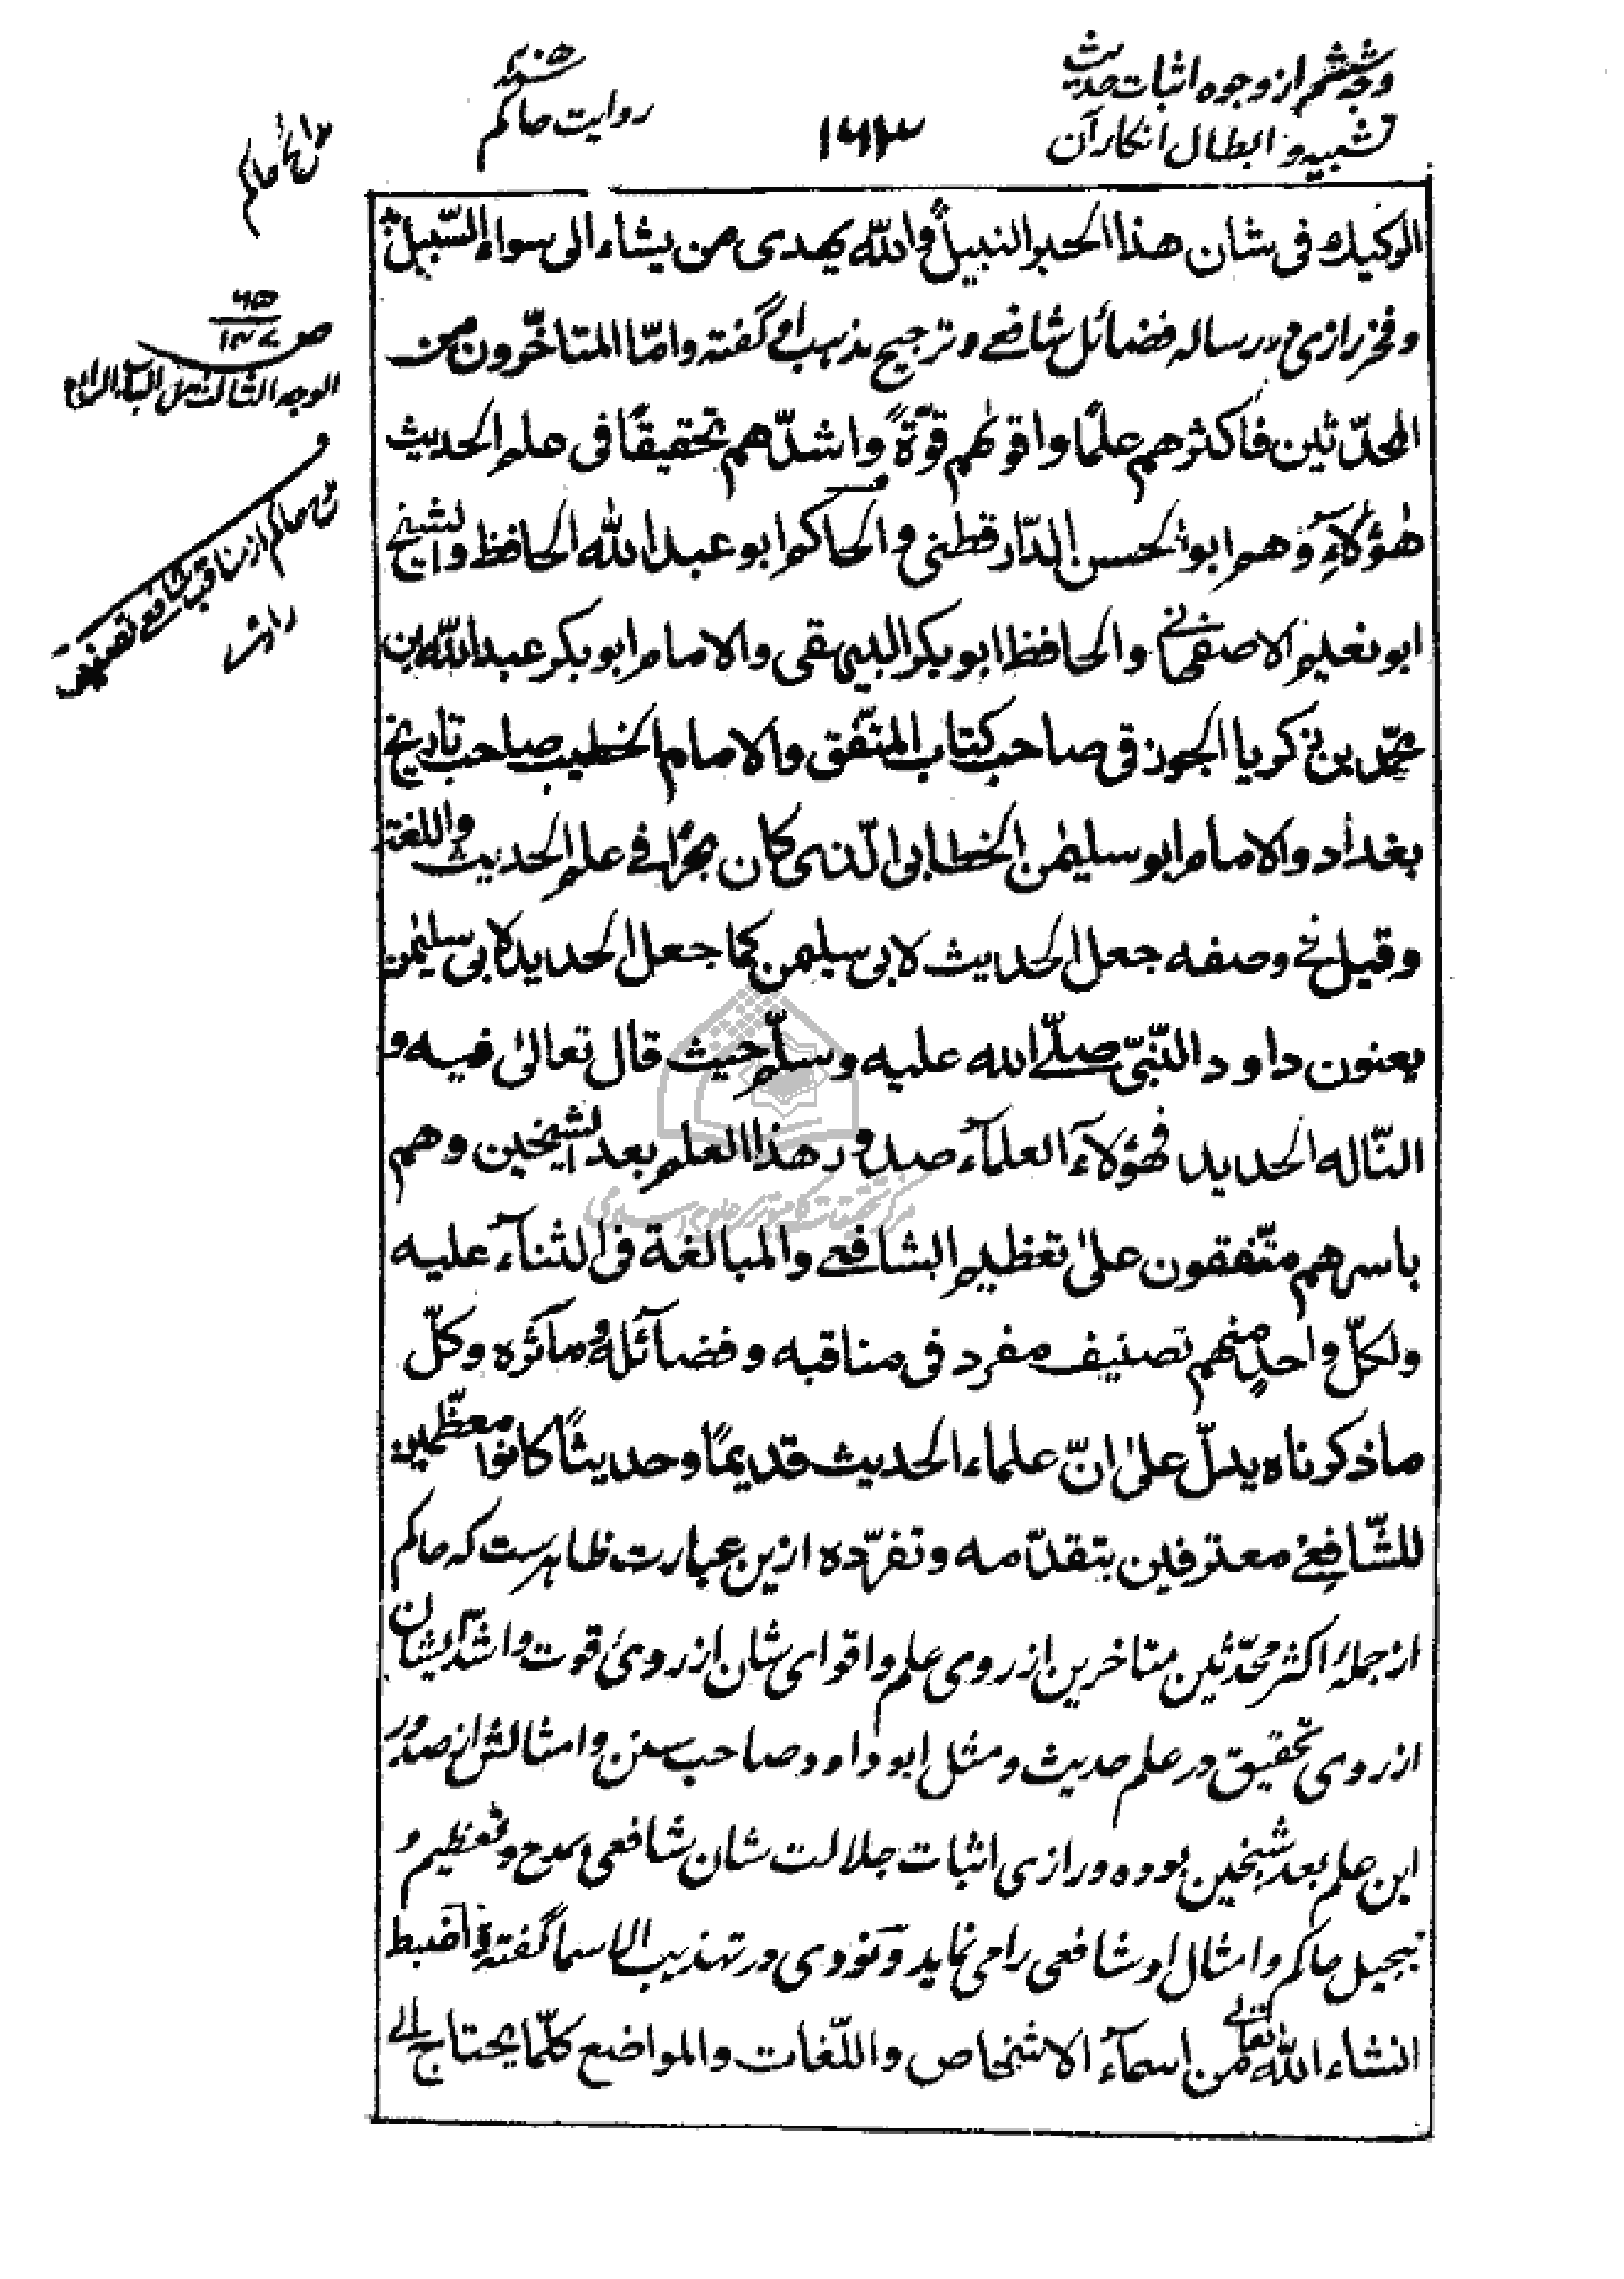 وجه ششم از وجوه اثبات حدیث
تشبیه و ابطال انکار آن
۱۶۳
روایت حاکم
مدائح حاکم
الرکیك فی شان هذا الحبر النبیل والله یهدی من یشاء الی سواء السّبیل
و فخر رازی در رساله فضائل شافعی و ترجیح مذهب او گفته وامّا المتاخّرون من
المحدّثین فاکثرهم علمًا واقوٰهم قوّةً واشدّهم تحقیقًا فی علم الحدیث
هٰؤلآءِ وهم ابو الحسن الدّار قطنی والحاکم ابو عبد الله الحافظ والشیخ
ابو نعیم الاصفهانی والحافظ ابو بکر البیهقی والامام ابو بکر عبد الله بن
محمّد بن زکریا الجوزقی صاحب کتاب المتّفق والامام الخطیب صاحب تاریخ
بغداد والامام ابو سلیمٰن الخطابی الّذی کان بحرًا فی علم الحدیث واللغة
وقیل فی وصفه جعل الحدیث لابی سلیمٰن کما جعل الحدید لابی سلیمٰن
یعنون داود النّبیّ صلّی الله علیه وسلّم حیث قال تعالیٰ فیه و
النّاله الحدید فهؤلآء العلمآء صدور هذا العلم بعد الشیخین وهم
باسرهم متّفقون علیٰ تعظیم الشافعی والمبالغة فی الثنآء علیه
ولکلّ واحدٍ منهم تصنیف مفرد فی مناقبه وفضآئله ومآثره وکلّ
ماذکرناه یدلّ علیٰ انّ علماء الحدیث قدیمًا وحدیثًا کانوا معظّمین
للشّافعی معترفین بتقدّمه وتفرّده ازین عبارت ظاهرست که حاکم
از جملهٔ اکثر محدّثین متاخرین از روی علم و اقوای شان از روی قوت و اشدّ ایشان
از روی تحقیق در علم حدیث و مثل ابو داود صاحب سنن و امثالش از صدور
این علم بعد شیخین بوده و رازی اثبات جلالت شان شافعی بمدح و تعظیم و
تبجیل حاکم و امثال او شافعی را می نماید و نووی در تهذیب الاسما گفته واضبط
انشاء الله تعالی من اسمآء الاشخاص واللّغات والمواضع کلّما یحتاج الی
ص ۶۵
الوجه الثالث من الباب الرابع
و